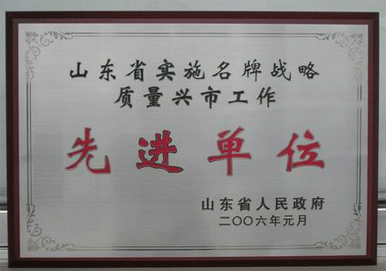 山东省实施名牌战略
质量兴市工作
先进单位
山东省人民政府
二〇〇六年元月